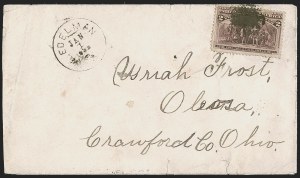 EDELMAN
JAN
Uriah Frost,
Crawford Co. Ohio.